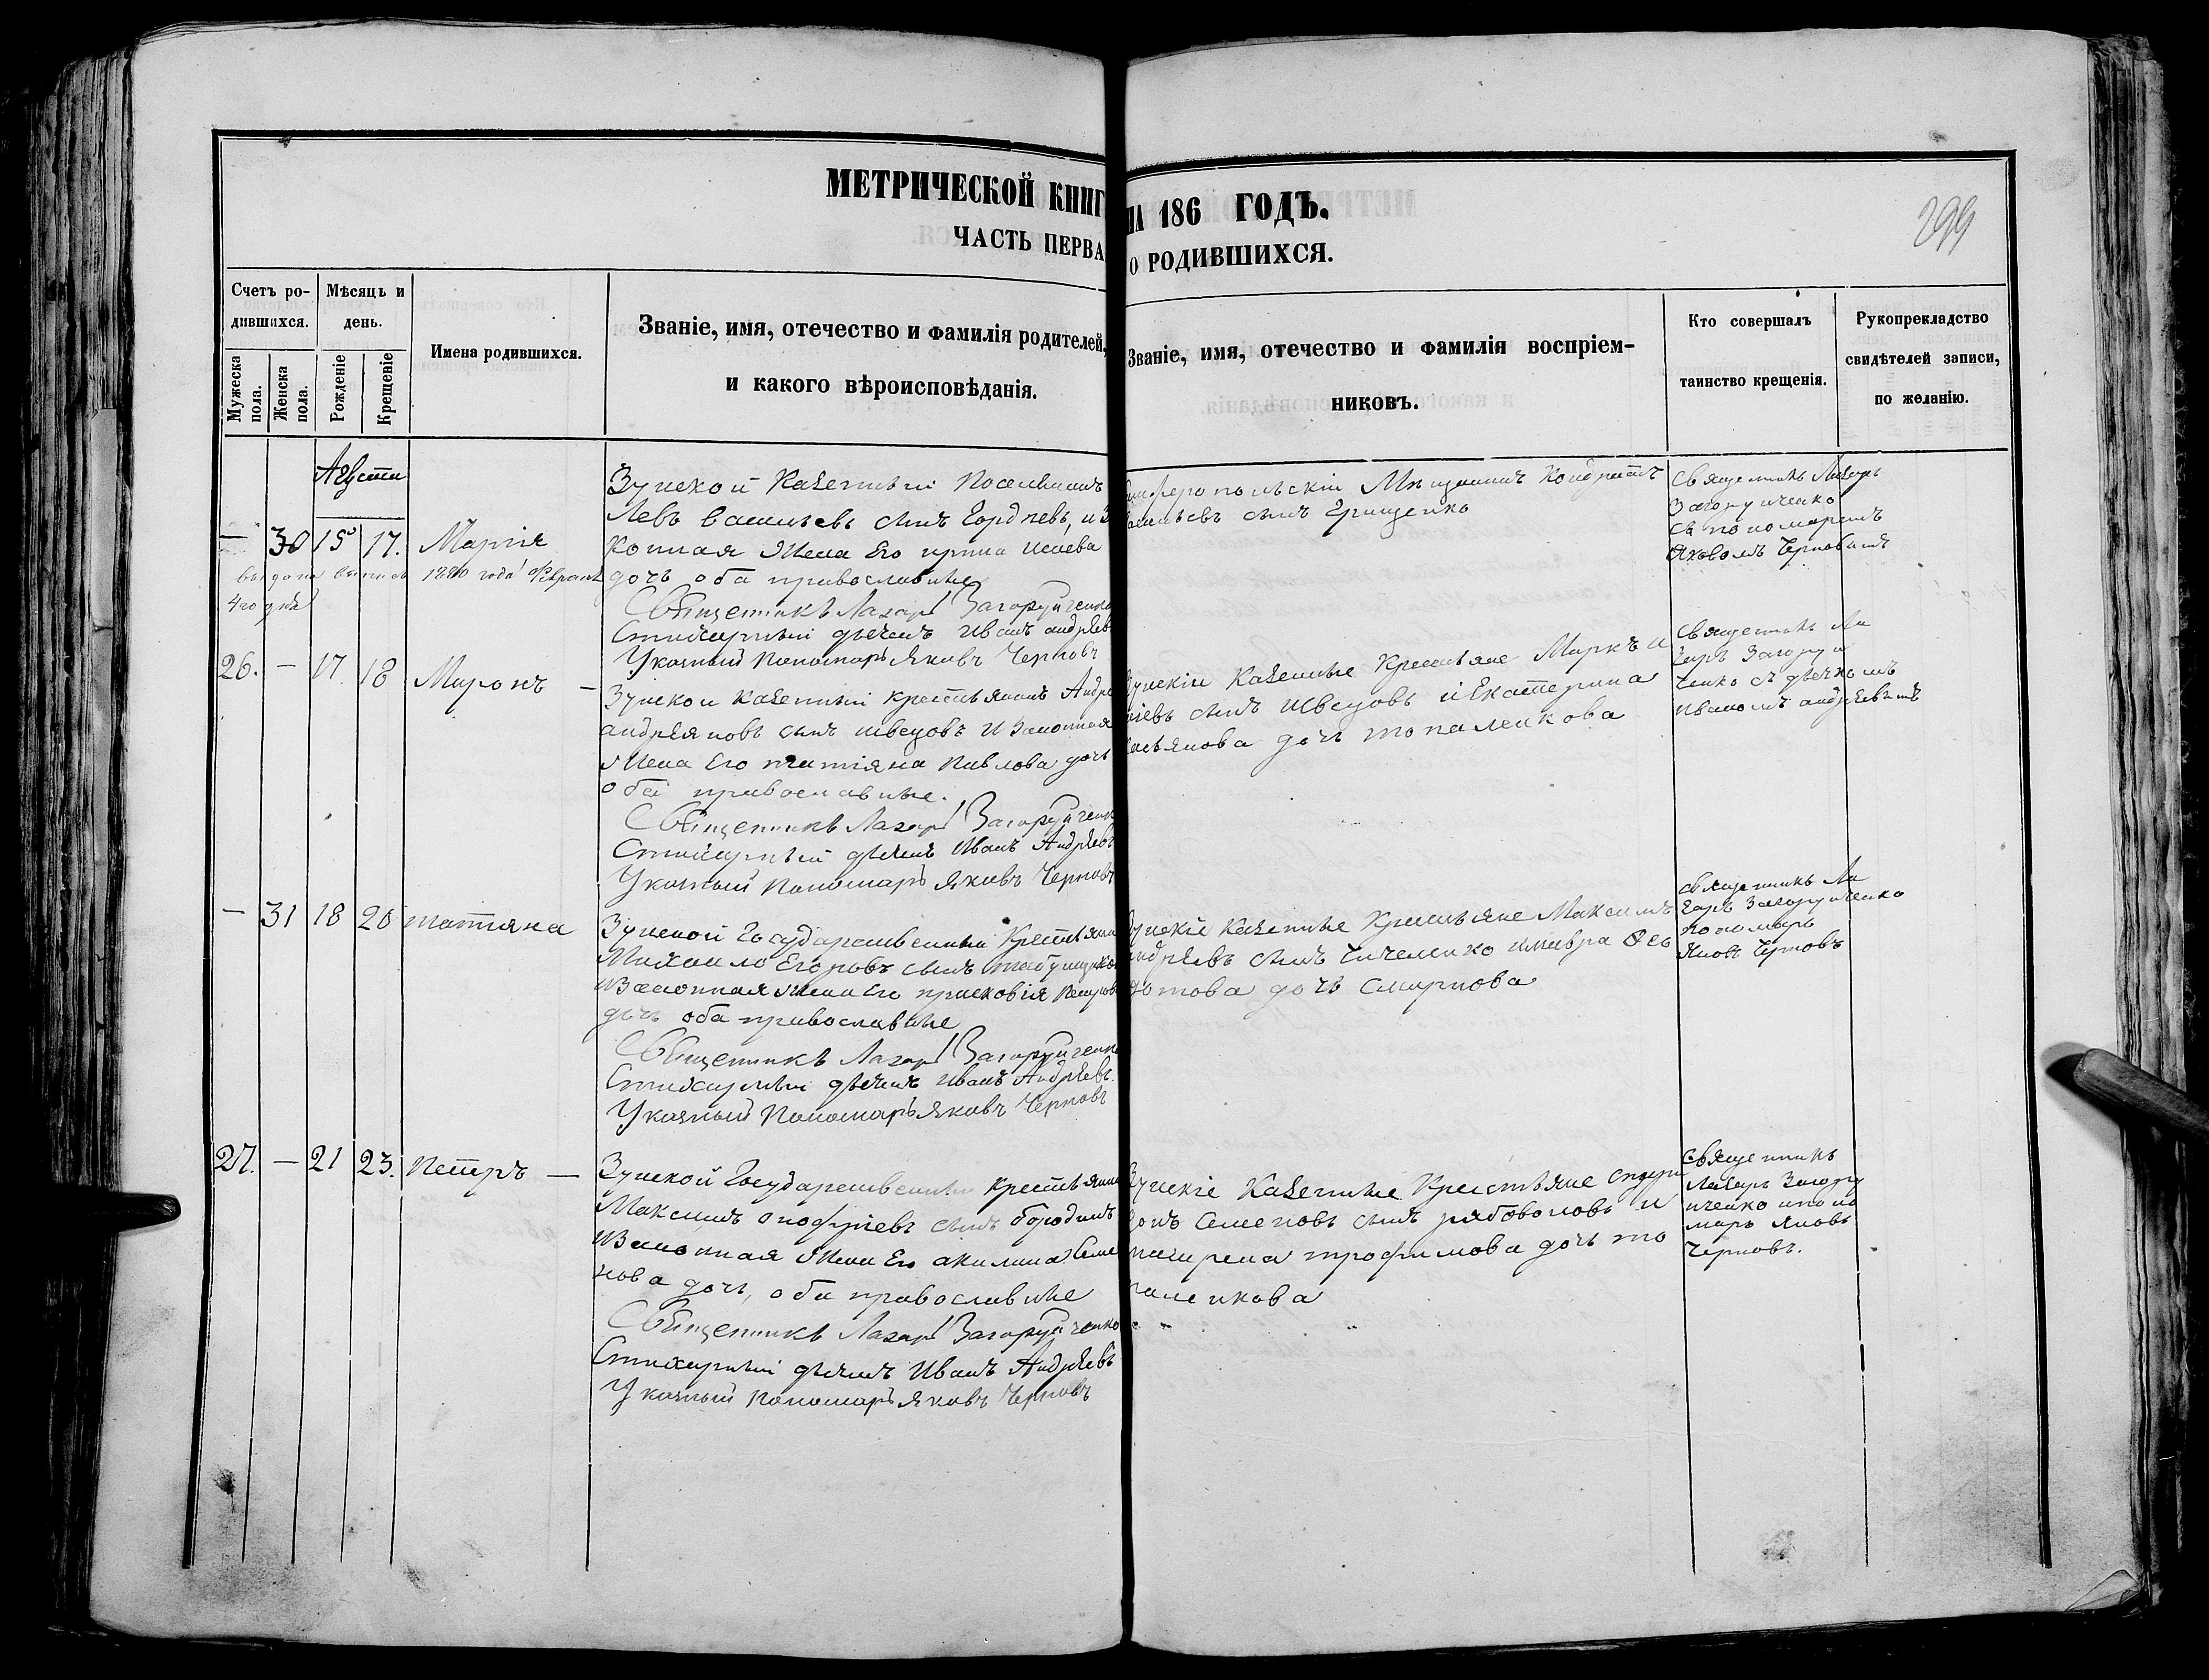 МЕТРИЧЕСКОЙ КНИГ
ЧАСТЬ ПЕРВА
Счетъ ро-
дившихся.
Мужеска пола.
Женска пола.
Мѣсяцъ и
день.
Рожденіе
Крещеніе
Имена родившихся.
Званіе, имя, отечество и фамилія родителей,
и какого вѣроисповѣданія.
НА 186 ГОДЪ.
О РОДИВШИХСЯ.
299
Званіе, имя, отечество и фамилія воспріем-
никовъ.
Кто совершалъ
таинство крещенія.
Рукопрекладство
свидѣтелей записи,
по желанію.
Августа
— 30 15 17. Марія
выдана выпись 1880 года Февраля
4го дня
Зуйской Казенный Поселянинъ
Левъ Васильевъ сынъ Гордѣевъ, и З
конная Жена Его
дочь оба православные
Священникъ Лазарь Загоруйченко
Стихарный дьячекъ Иванъ Андрѣев
Указный Пономарь Яковъ Черновъ
Мѣщанинъ Кондратъ
сынъ Грищенко
Священникъ Лазарь
Загоруйченко
съ пономаремъ
Яковомъ Черновымъ
26. — 17. 18 Миронъ —
Зуйской Казенный крестьянинъ Андре
андріяновъ сынъ швецовъ и Законная
Жена Его татіяна Павлова дочь
оба православные.
Священникъ Лазарь Загоруйченк
Стихарный дьячекъ Иванъ Андрѣевъ
Указный Пономарь Яковъ Черновъ
Зуйскіи Казенные Крестьяне Маркъ и
сынъ Швецовъ и Екатерина
дочь топаленкова
Священникъ Ла
зарь Загоруй
ченко съ дьячкомъ
Иваномъ андрѣевымъ
— 31 18 20 татіяна
Зуйской Государственный Крестьянин
Михаило Егоровъ сынъ табунщико
и Законная Жена Его прасковія Петров
дочь оба православные
Священникъ Лазарь Загоруйченк
Стихарный дьячекъ Иванъ Андрѣевъ
Указный Пономарь Яковъ Черновъ
Зуйскіе Казенные Крестьяне Максимъ
андрѣевъ сынъ и мавра Фео
дотова дочь Смирнова
Священникъ Ла
зарь Загоруйченко
пономарь
Яковъ Черновъ
27. — 21 23. Петръ —
Зуйской Государственный крестьянин
Максимъ онофріевъ сынъ бородинъ
и Законная Жена Его акилина Семе
нова дочь, оба православные
Священникъ Лазарь Загоруйченко
Стихарный дьячекъ Иванъ Андрѣевъ
Указный Пономарь Яковъ Черновъ
Зуйскіе Казенные Крестьяне Спири
донъ Семеновъ сынъ рябоволовъ и
трофимова дочь то
паленкова
Священникъ
Лазарь Загору
йченко и поно
марь Яковъ
Черновъ.